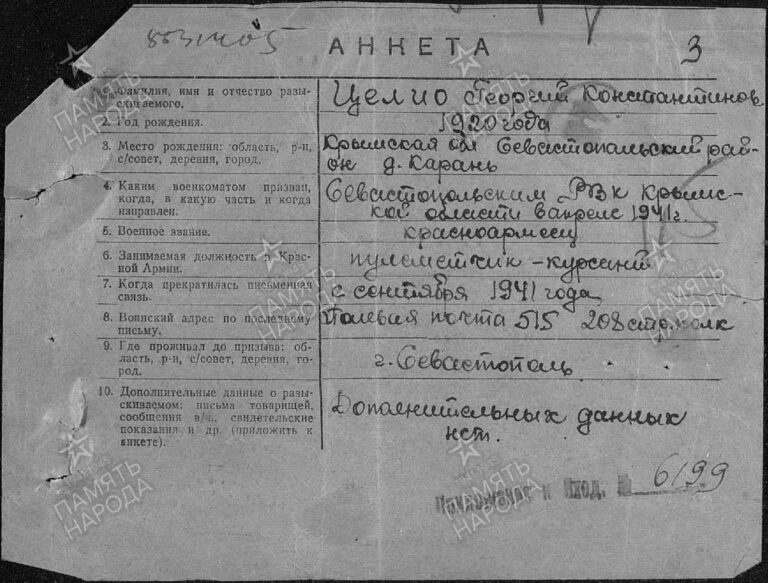 АНКЕТА
3
1. Фамилия, имя и отчество разы-
скиваемого.
Целио Георгий Константинов
2. Год рождения.
1920 года
3. Место рождения: область, р-н,
с/совет, деревня, город.
Крымская обл Севастопольский рай-
он д. Карань
4. Каким военкоматом призван,
когда, в какую часть и когда
направлен.
Севастопольским РВК Крымс-
кой области в апреле 1941 г.
5. Военное звание.
красноармеец
6. Занимаемая должность в Крас-
ной Армии.
пулеметчик-курсант
7. Когда прекратилась письменная
связь.
с сентября 1941 года
8. Воинский адрес по последнему
письму.
Полевая почта 515 208 стр полк
9. Где проживал до призыва: об-
ласть, р-н, с/совет, деревня, го-
род.
г. Севастополь
10. Дополнительные данные о разы-
скиваемом: письма товарищей,
сообщения в/ч, свидетельские
показания и др. (приложить к
анкете).
Дополнительных данных
нет.
к Вход. № 6199
ПАМЯТЬ
НАРОДА
ПАМЯТЬ
НАРОДА
ПАМЯТЬ
НАРОДА
ПАМЯТЬ
НАРОДА
ПАМЯТЬ
НАРОДА
ПАМЯТЬ
НАРОДА
ПАМЯТЬ
НАРОДА